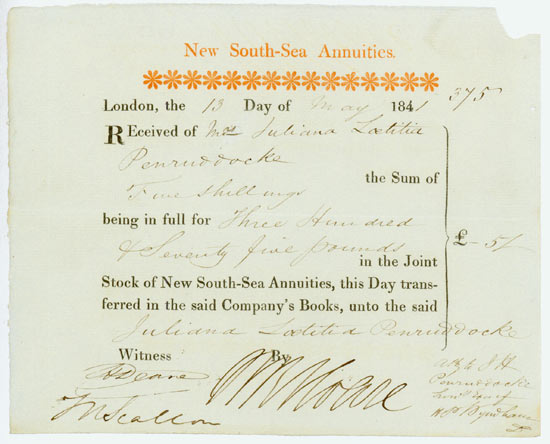 New South-Sea Annuities.
London, the 13 Day of May 1841
375
Received of Mrs Juliana Lætitia
Penruddocke
Five shillings
the Sum of
being in full for Three Hundred
& Seventy five pounds
£ - 5/-
in the Joint
Stock of New South-Sea Annuities, this Day trans-
ferred in the said Company's Books, unto the said
Juliana Lætitia Penruddocke
Witness By
Deane
Hoare
Penruddocke